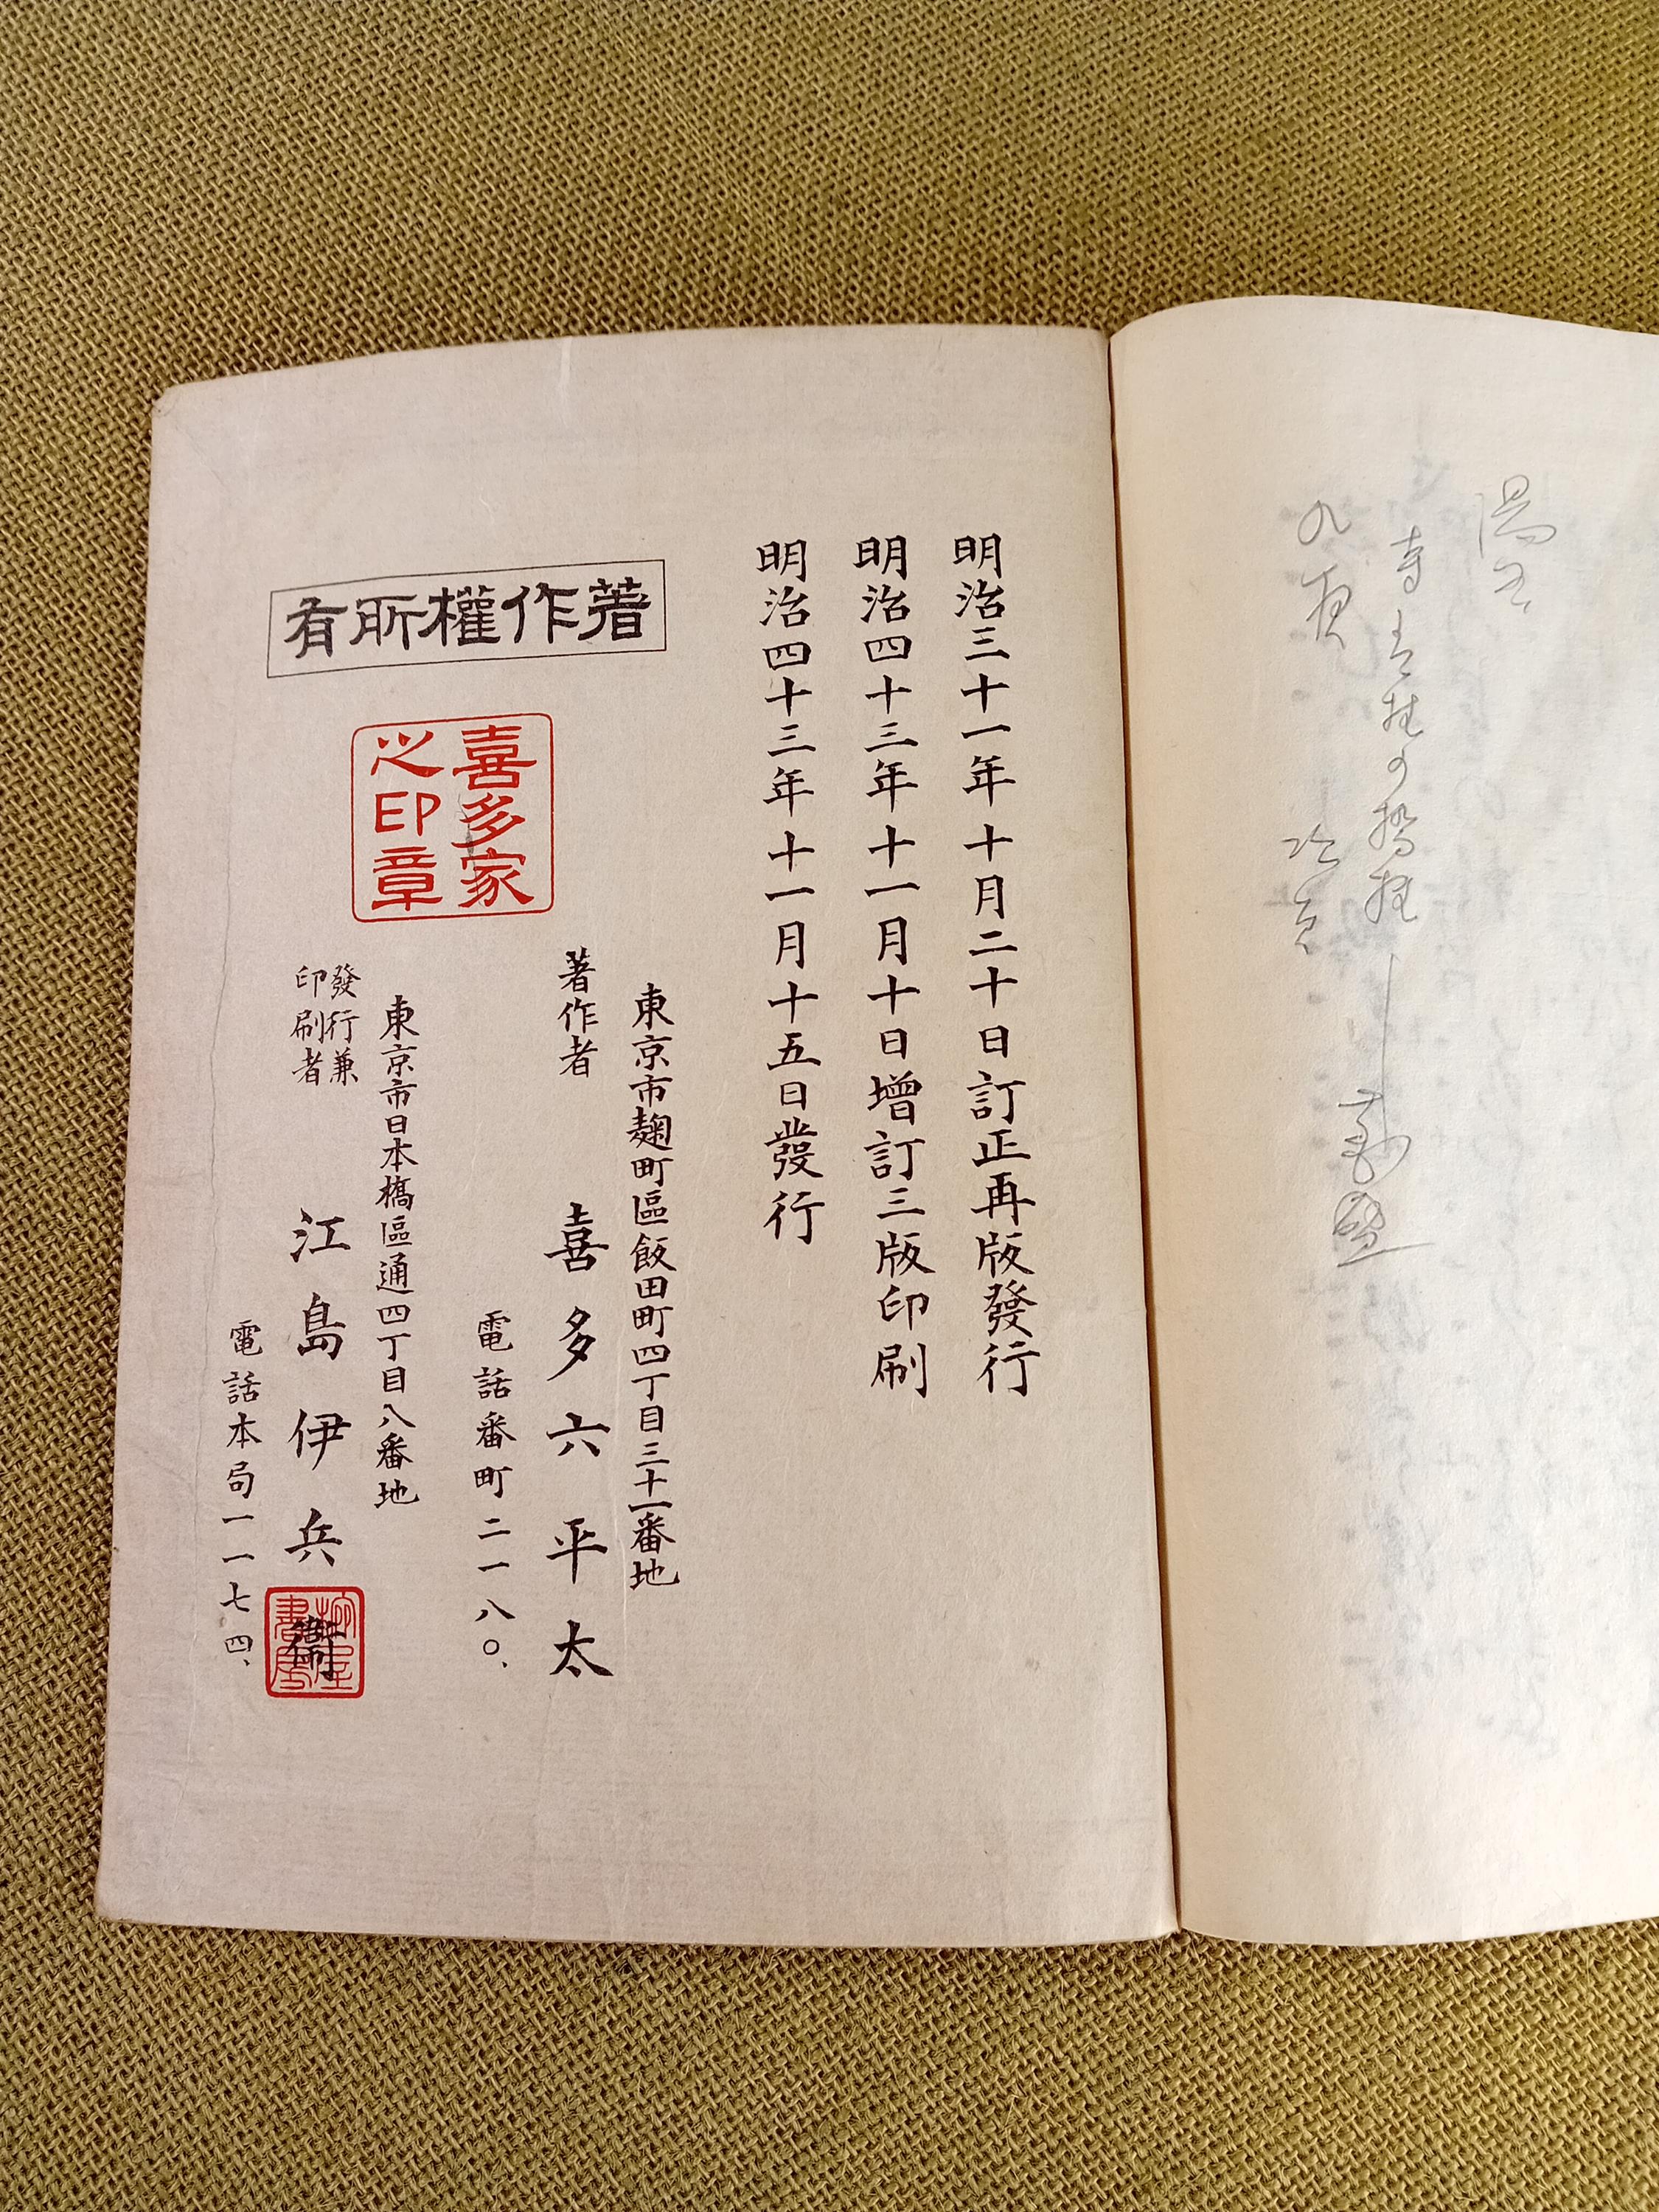 九頁
明治三十一年十月二十日訂正再版發行
明治四十三年十一月十日增訂三版印刷
明治四十三年十一月十五日發行
著作權所有
喜多家
之印章
東京市麹町區飯田町四丁目三十一番地
著作者 喜多六平太
電話番町二一八〇、
東京市日本橋區通四丁目八番地
發行兼
印刷者
江島伊兵衞
電話本局一一七四、